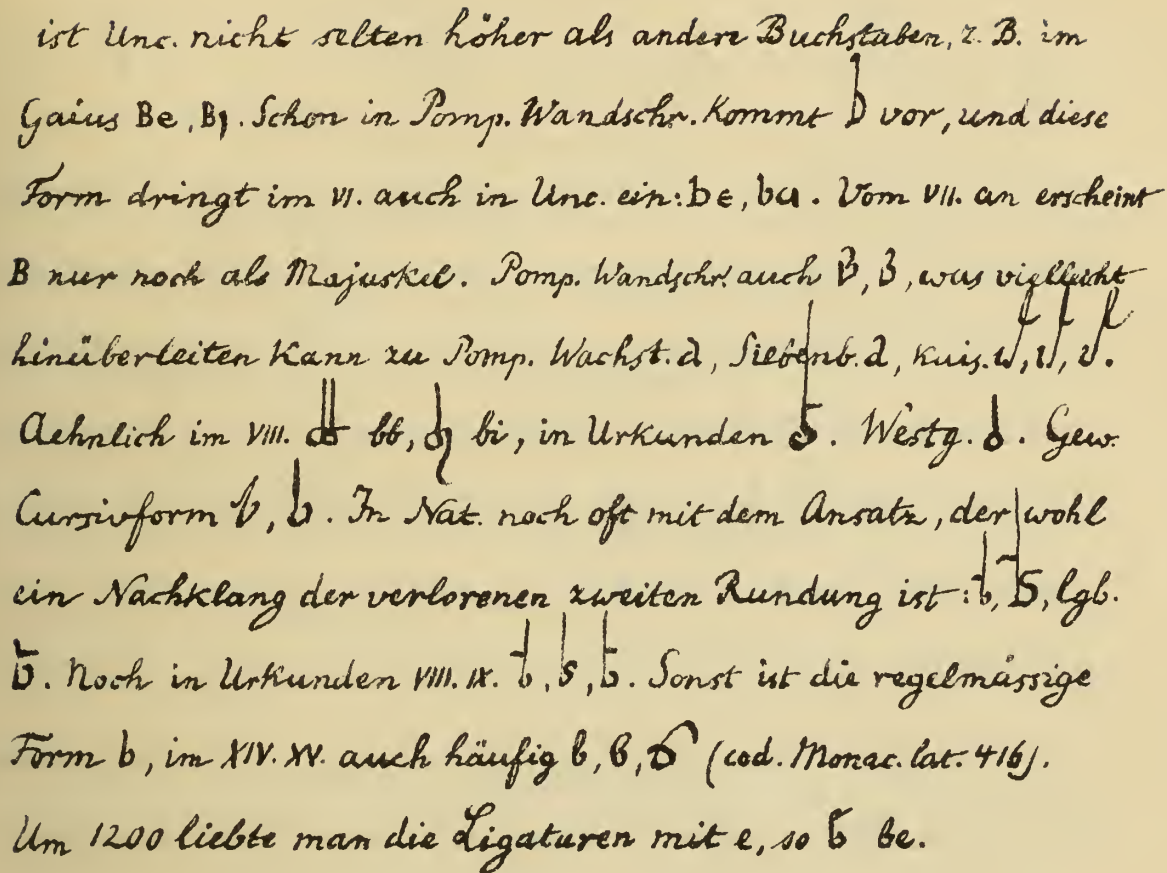 ist Unc. nicht selten höher als andere Buchstaben, z. B. im
Gaius Be, B. Schon in Pomp. Wandschr. kommt b vor, und diese
Form dringt im VI. auch in Unc. ein: be, ba. Vom VII. an erscheint
B nur noch als Majuskel. Pomp. Wandschr. auch B, B, was vielleicht
hinüberleiten kann zu Pomp. Wachst. d, Siebenb. d, kais.
Aehnlich im VIII. bb, bi, in Urkunden . Westg. . Gew.
Cursivform b, b. In Nat. noch oft mit dem Ansatz, der wohl
ein Nachklang der verlorenen zweiten Rundung ist: b, b, lgb.
b. Noch in Urkunden VIII. IX. b, b, b. Sonst ist die regelmässige
Form b, im XIV. XV. auch häufig b, b, b (cod. Monac. lat. 416).
Um 1200 liebte man die Ligaturen mit e, so be.